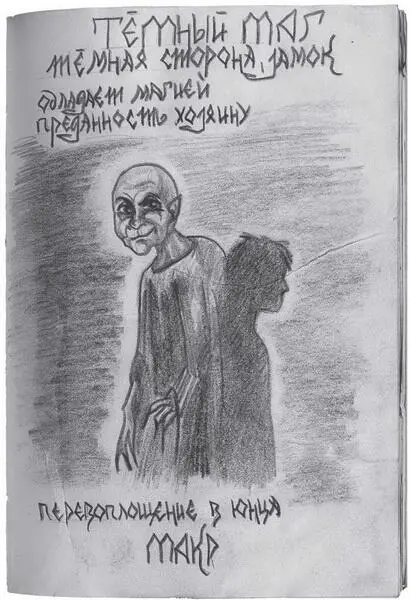 ТЁМНЫЙ МАГ
ТЁМНАЯ СТОРОНА, ЗАМОК
ОБЛАДАЕТ МАГИЕЙ
ПРЕДАННОСТЬ ХОЗЯИНУ
ПЕРЕВОПЛОЩЕНИЕ В ЮНЦА
МАКР